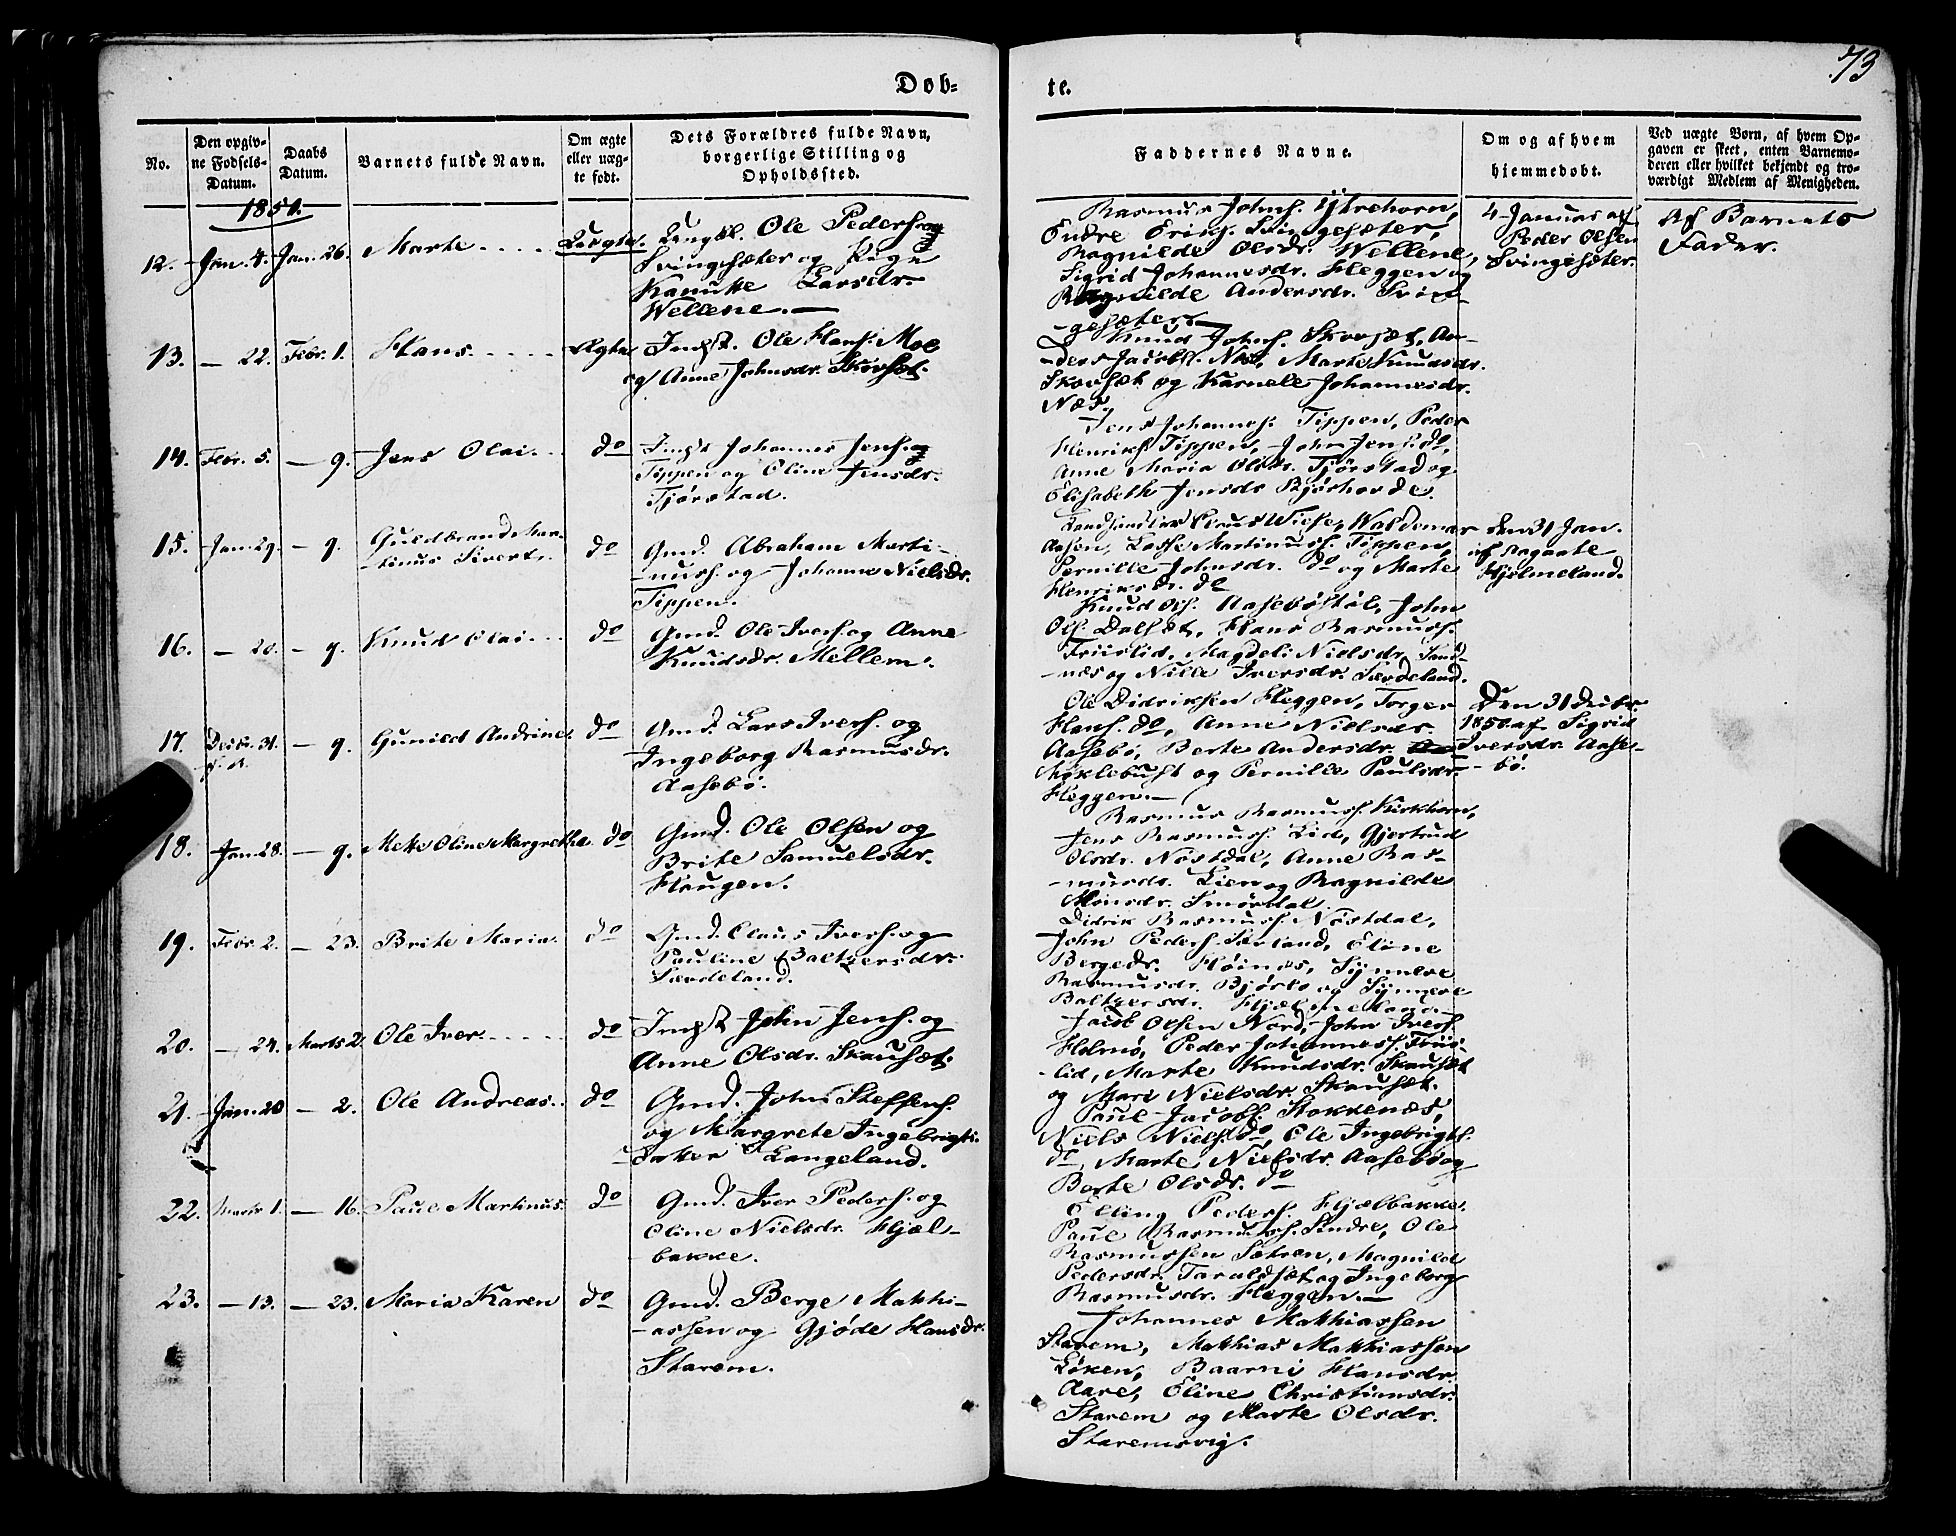 73
Døb-
te.
No.
Den opgiv-
ne Fødsels-
Datum.
Daabs
Datum.
Barnets fulde Navn.
Om ægte
eller uæg-
te født.
Dets Forældres fulde Navn,
borgerlige Stilling og
Opholdssted.
Faddernes Navne.
Om og af hvem
hjemmedøbt.
Ved uægte Børn, af hvem Op-
gaven er skeet, enten Barnemo-
deren eller hvilket bekjendt og tro-
værdigt Medlem af Menigheden.
1851.
12. Jan. 4. Jan. 26. Marte Uægte. Ungkl. Ole Peders. og
Svingesæter og Pige
Larsdr.
Wellene.
Rasmus Johns. Ytrehorn,
Endre Svingesæter,
Ragnilde Olsdr. Wellene,
Sigrid Johannesdr. Fleggen og
Ragnilde Andersdr. Svin-
gesæter.
4 Januar af
Peder Olsen
Svingesæter.
Af Barnets
Fader.
13. — 22. Febr. 1. Hans Ægte Indst. Ole Hans. Moe
og Anne Johnsdr. Skovset.
Knud Johns. Skovsæt, An-
ders Jacobs. Næs, Marte Knudsdr.
Skovsæt og Karnele Johannesdr.
Næs.
14. Febr. 5. — 9. Jens Olai. do Indst Johannes Jens. og
Tippen og Oline Jensdr.
Tjørstad.
Jens Johannes. Tippen, Peder
Henriks Tippen, John Jens. do,
Anne Maria Olsdr. Tjørstad og
Elisabeth Jensdr
15. Jan. 29. — 9. Guldbrand Mar-
tinus Sivert. do Gmd. Abraham Marti-
nuss. og Johanne Nielsdr.
Tippen.
Landhandler Claus Wiese, Waldemar
Aasen, Lasse Martinuss. Tippen,
Pernille Johnsdr. do og Marte
Henriksdr. do
den 31 Jan.
af Aagaate
Hjelmeland.
16. — 20. — 9. Knud Olai do Gmd. Ole Ivers. og Anne
Knudsdr. Mellem.
Knud Ols. Aasebøstøl, John
Ols. Dalsæt, Hans Rasmuss.
Friislid, Magdeli Nielsdr. Sand-
næs og Nille Iversdr. Særdeland.
17. Decbr. 31. — 9. Gunild Andrine do Gmd. Lars Ivers. og
Ingeborg Rasmusdr.
Aasebø.
Ole Didriksen Fleggen, Torger
Hans. do, Anne Nielsdr.
Aasebø, Berte Andersdr.
Myklebust og Pernille Paulsdr.
Fleggen.
Den 31 Decbr.
1850 af Sigrid
Iversdr. Aase-
bø.
18. Jan. 28. — 9. Mette Oline Margrethe do Gmd. Ole Olsen og
Brite Samuelsdr.
Haugen.
Rasmus Rasmuss. Kirkhorn,
Jens Rasmuss. Lid, Gjertrud
Olsdr. Nøstdal, Anne Ras-
musdr. Lien og Ragnilde
Monsdr. Smørdal.
19. Febr. 2. — 23. Brite Maria. do Gmd. Claus Ivers. og
Pauline Baltzersdr.
Særdeland.
Didrik Rasmuss. Nøstdal,
John Peders. Eline
Bergedr. Høines, Synneve
Rasmusdr. og Synneve
Baltzersdr. Hjelmeland.
20. — 24. Marts 2. Ole Iver do Indst John Jens. og
Anne Olsdr. Skausæt.
Jacob Olsen Nord, John Ivers.
Holmø, Peder Johanness. Friis-
lid, Marte Knudsdr. Skausæt
og Mari Nielsdr. Skausæt.
21. Jan. 20 — 2. Ole Andreas. do Gmd. John Steffens.
og Margrete Ingebrigts-
datter Langeland.
Paul Jacobs. Stokkenæs,
Niels Niels. do, Ole Ingebrigts.
do, Marte Nielsdr. Aasebø og
Berte Olsdr. do
22. Marts 1. — 16. Paul Martinus. do Gmd. Iver Peders. og
Oline Nielsdr. Hjæl-
bakke.
Elling Peders. Hjælbakke,
Paul Rasmuss. Indre, Ole
Rasmussen Sætren, Magnild
Pedersdr. Taraldsæt og Ingeborg
Rasmusdr. Fleggen.
23. — 13. — 23. Maria Karen do Gmd. Berge Matthi-
assen og Gjøde Hansdr.
Starem.
Johannes Matthiassen
Starem, Matthias Matthiassen
Løken, Baarni Hansdr.
Aare, Eline Christiansdr.
Starem og Marte Olsdr.
Staremsvig.